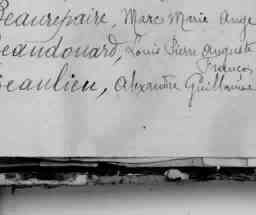 Beaurepaire, Marc Marie Ange
Beaudouard, Louis Pierre Auguste
François
Beaulieu, Alexandre Guillaume